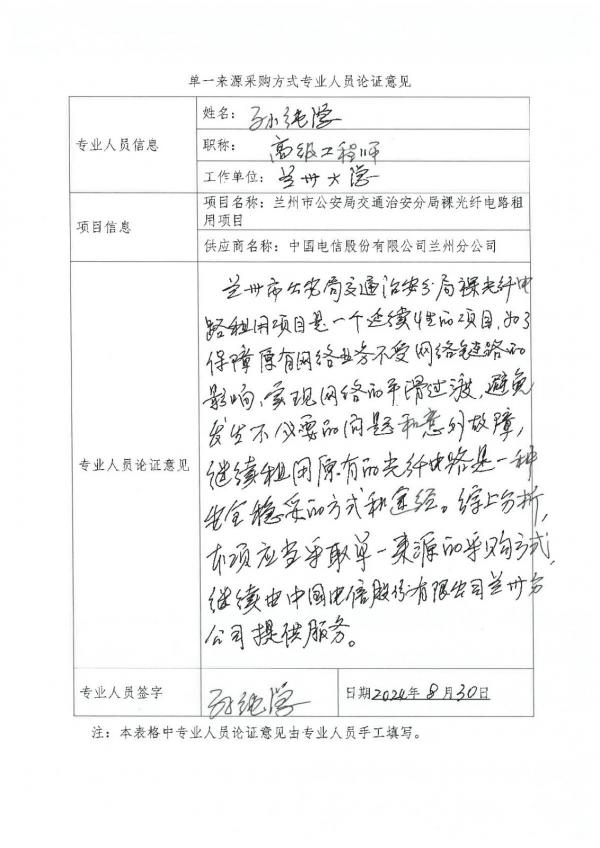 单一来源采购方式专业人员论证意见
专业人员信息
姓名：孙纯学
职称：高级工程师
工作单位：兰州大学
项目信息
项目名称：兰州市公安局交通治安分局裸光纤电路租
用项目
供应商名称：中国电信股份有限公司兰州分公司
专业人员论证意见
兰州市公安局交通治安分局裸光纤电
路租用项目是一个延续性的项目，为了
保障原有网络业务不受网络链路的
影响、实现网络的平滑过渡，避免
发生不必要的问题和意外故障，
继续租用原有的光纤电路是一种
安全稳妥的方式和途径。综上分析，
本项应当采取单一来源的采购方式，
继续由中国电信股份有限公司兰州分
公司提供服务。
专业人员签字
孙纯学
日期2024年8月30日
注：本表格中专业人员论证意见由专业人员手工填写。